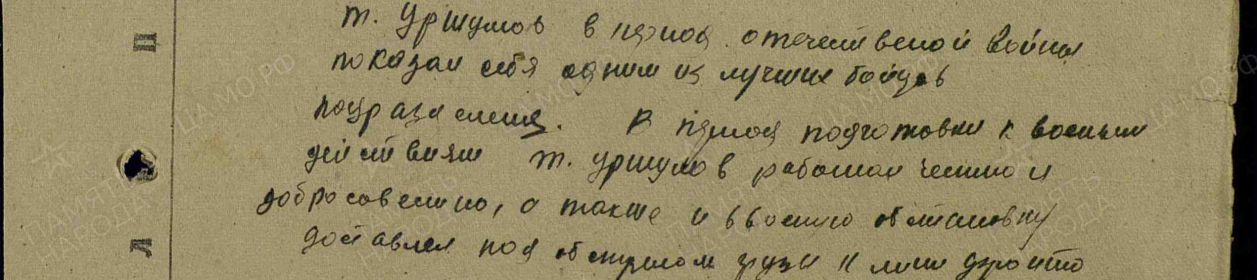 т. Уршумов в период отечественой войны
показал себя одним из лучших бойцов
подразделения. В период подготовки к военым
действиям т. Уршумов работал честно и
добросовесно, а также и в военую обстановку
доставлял под обстрелом грузы к
П
Л